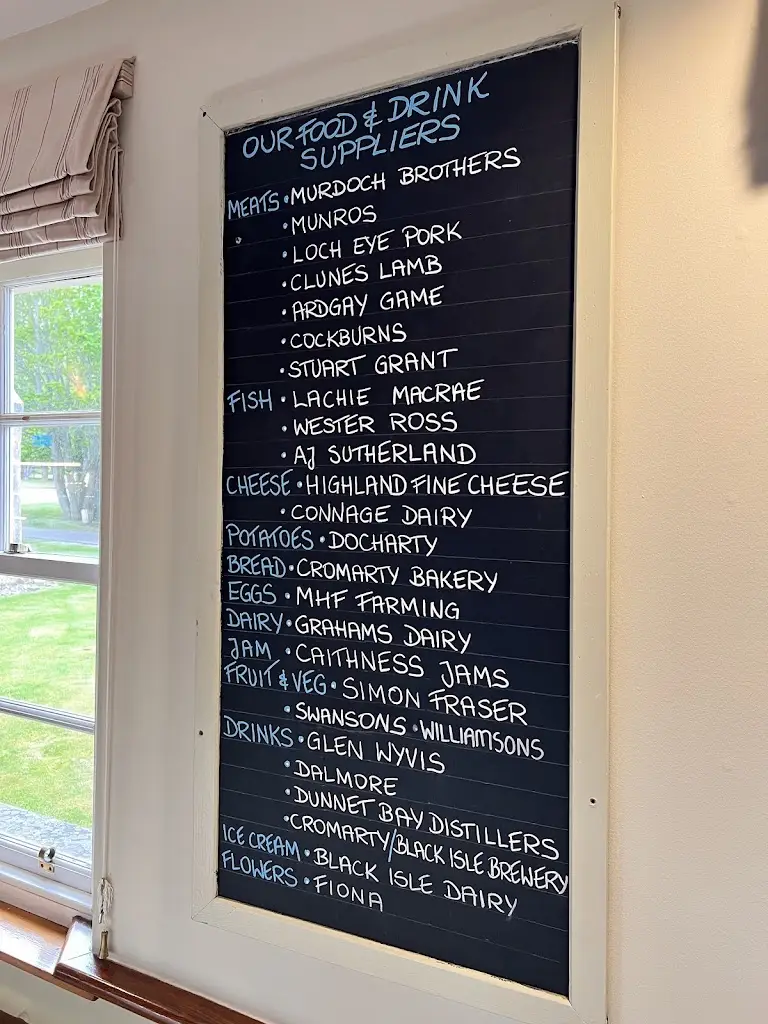 OUR FOOD & DRINK
SUPPLIERS
MEATS • MURDOCH BROTHERS
• MUNROS
• LOCH EYE PORK
• CLUNES LAMB
• ARDGAY GAME
• COCKBURNS
• STUART GRANT
FISH • LACHIE MACRAE
• WESTER ROSS
• AJ SUTHERLAND
CHEESE • HIGHLAND FINE CHEESE
• CONNAGE DAIRY
POTATOES • DOCHARTY
BREAD • CROMARTY BAKERY
EGGS • MHF FARMING
DAIRY • GRAHAMS DAIRY
JAM • CAITHNESS JAMS
FRUIT & VEG • SIMON FRASER
• SWANSONS • WILLIAMSONS
DRINKS • GLEN WYVIS
• DALMORE
• DUNNET BAY DISTILLERS
• CROMARTY/BLACK ISLE BREWERY
ICE CREAM • BLACK ISLE DAIRY
FLOWERS • FIONA